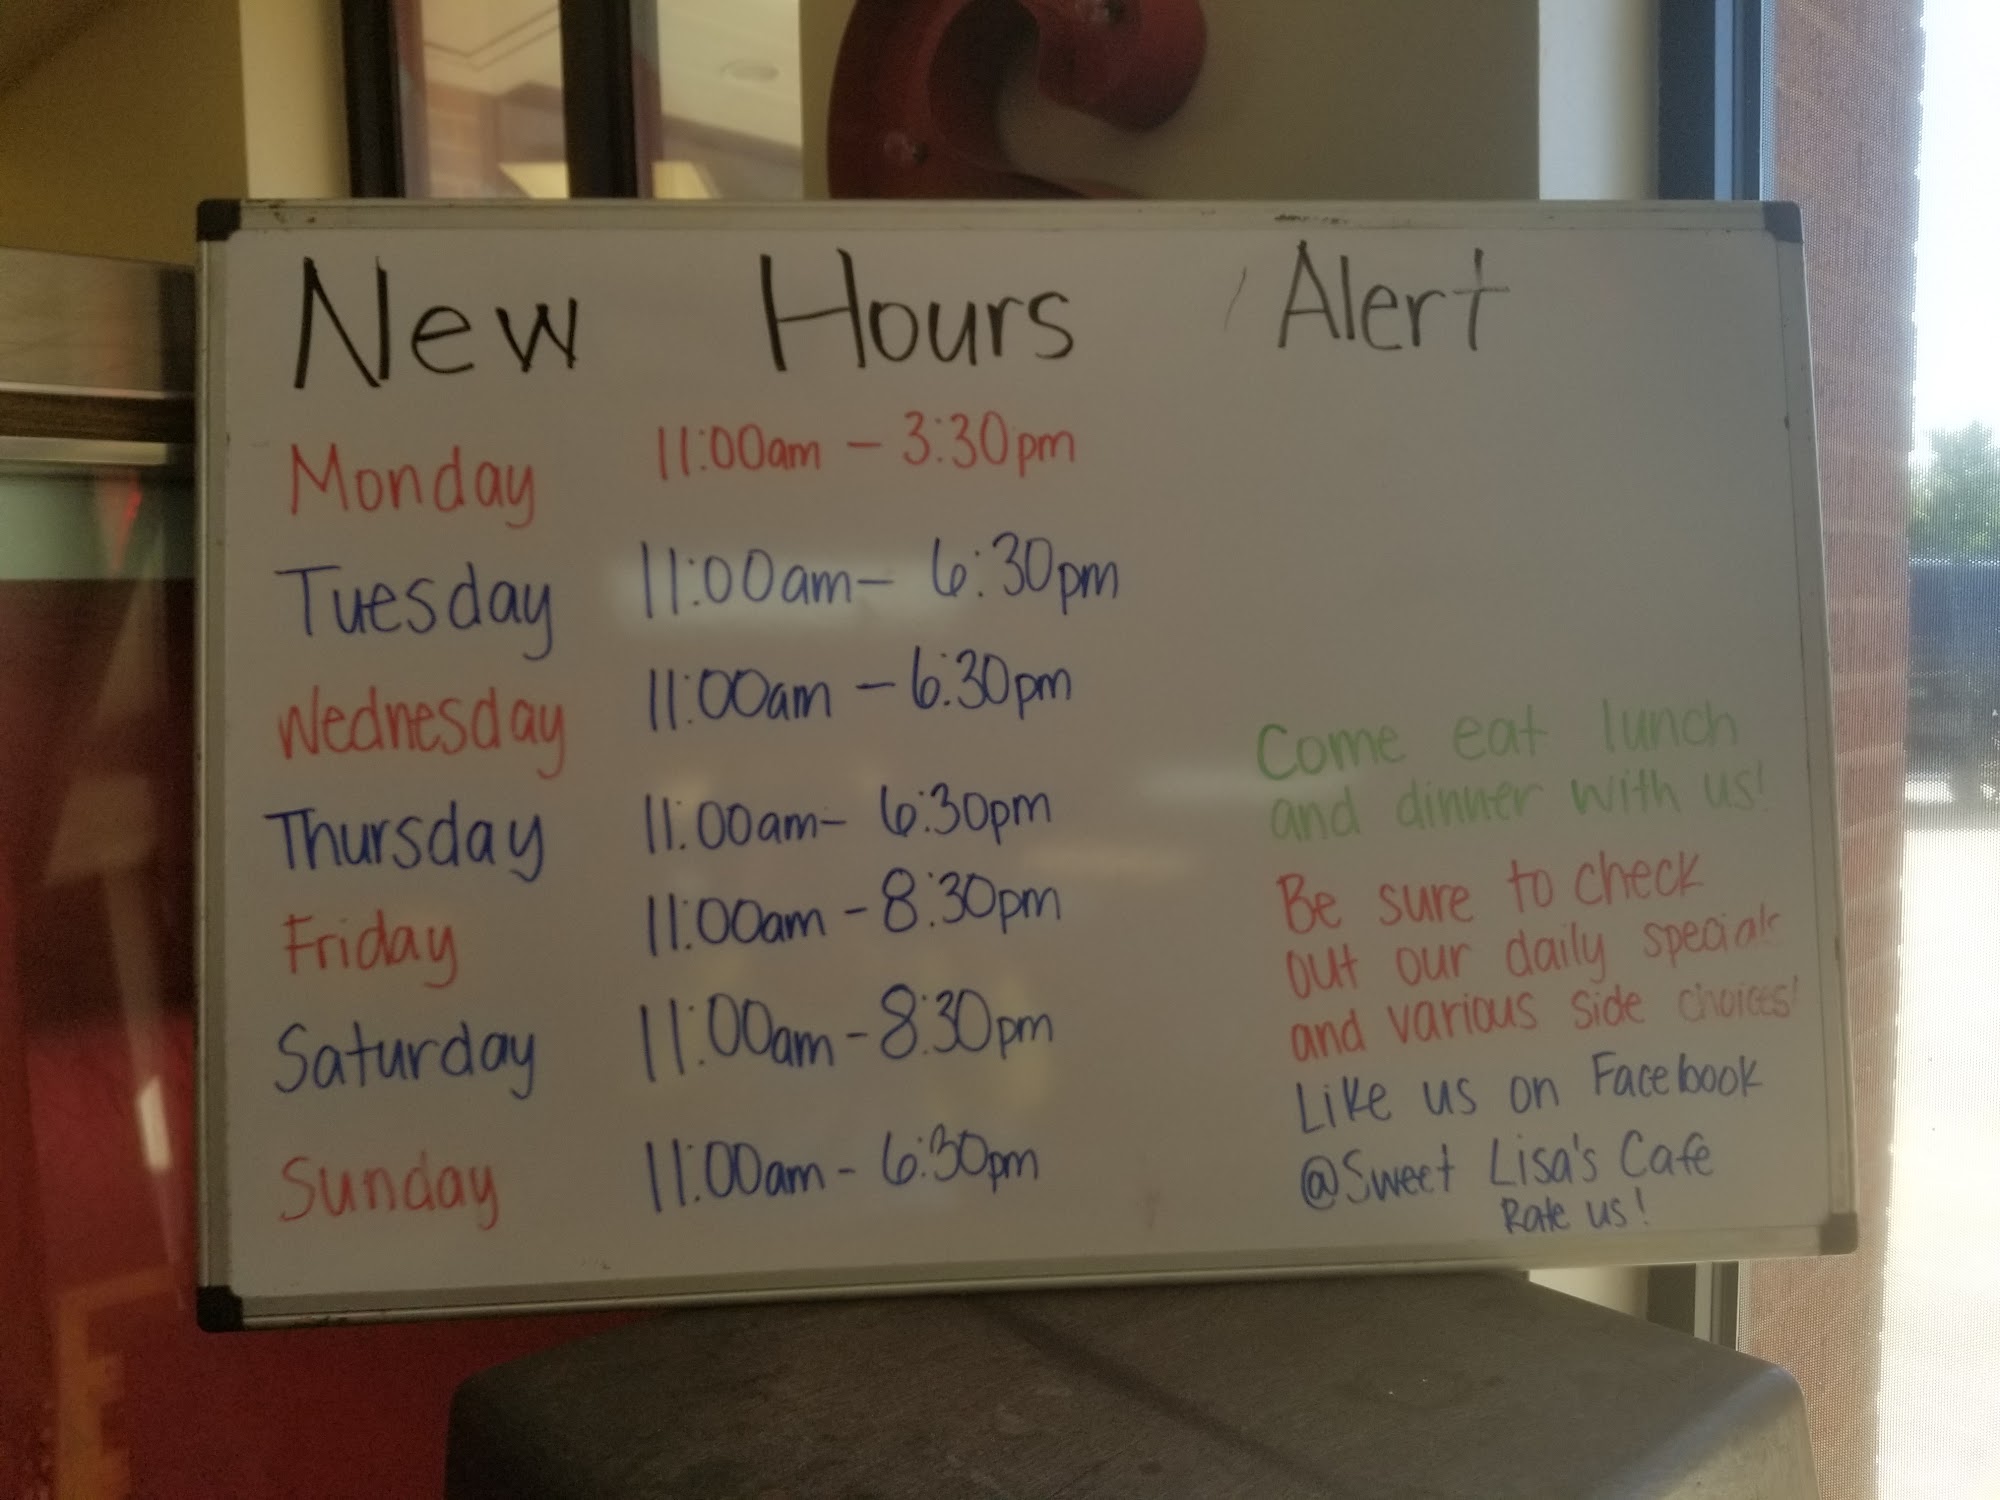 New Hours Alert
Monday 11:00am - 3:30pm
Tuesday 11:00am - 6:30pm
Wednesday 11:00am - 6:30pm
Thursday 11:00am - 6:30pm
Friday 11:00am - 8:30pm
Saturday 11:00am - 8:30pm
Sunday 11:00am - 6:30pm
Come eat lunch
and dinner with us!
Be sure to check
out our daily specials
and various side choices!
Like us on Facebook
@Sweet Lisa's Cafe
Rate us!